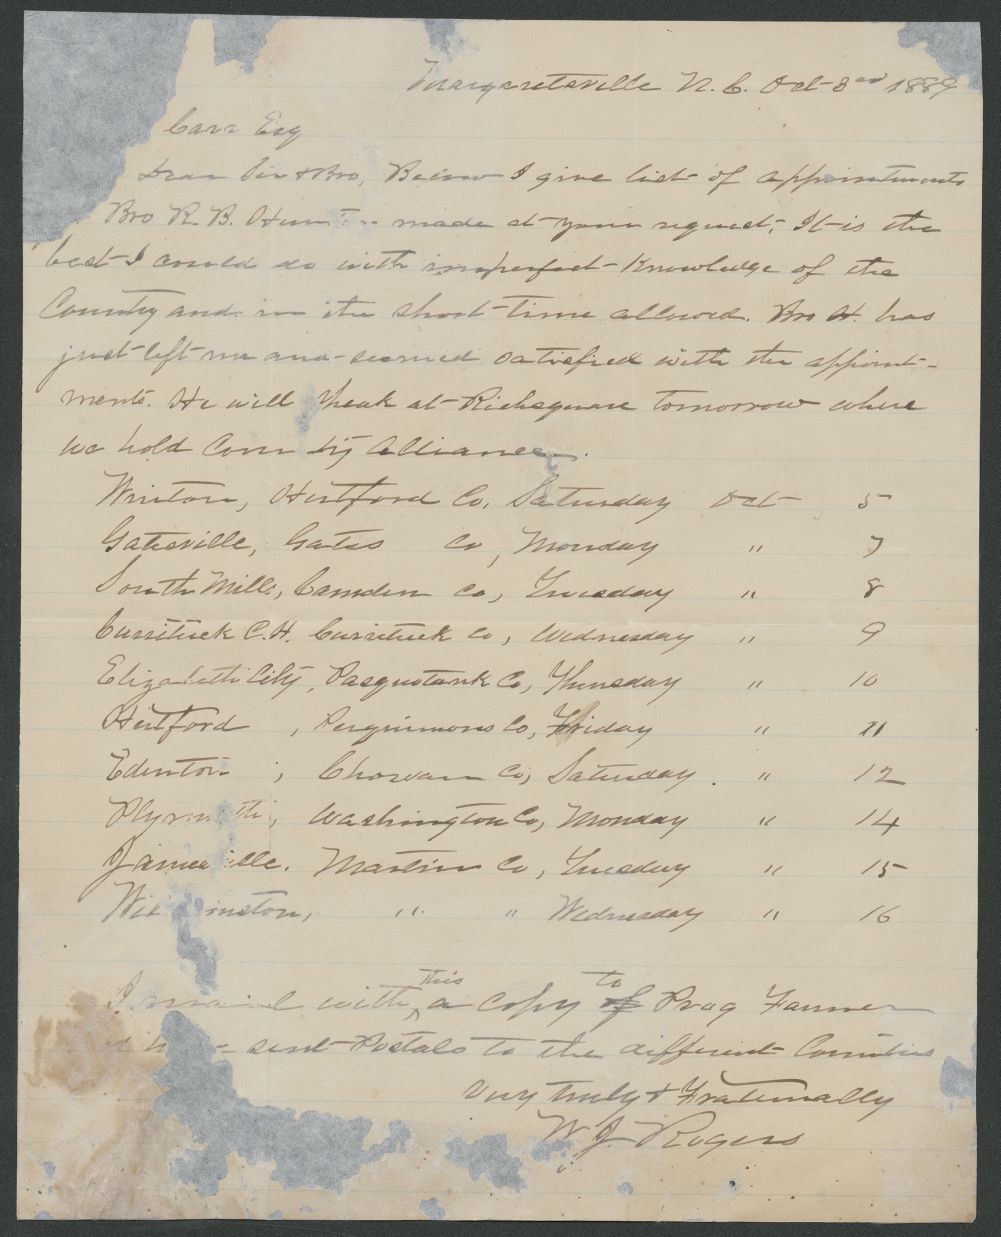 Margaretsville N. C. Oct 3rd 1889
Carr Esq
Dear Sir & Bro, Below I give list of appointments
Bro R. B. Hunter made at your request. It is the
best I could do with imperfect Knowledge of the
County and in the short time allowed. Bro H. has
just left me and seemed satisfied with the appoint-
ments. He will speak at Richsquare tomorrow where
we hold County Alliance.
Winton, Hertford Co, Saturday Oct 5
Gatesville, Gates Co, Monday " 7
South Mills, Camden Co, Tuesday " 8
Currituck C. H. Currituck Co, Wednesday " 9
Elizabeth City, Pasquotank Co, Thursday " 10
Hertford, Perquimmons Co, Friday " 11
Edenton, Chowan Co, Saturday " 12
Plymouth, Washington Co, Monday " 14
Jamesville, Martin Co, Tuesday " 15
Williamston, " " Wednesday " 16
I mail with this a copy to of Prog Farmer
sent Postals to the different Counties
Very truly & Fraternally
W. J. Rogers